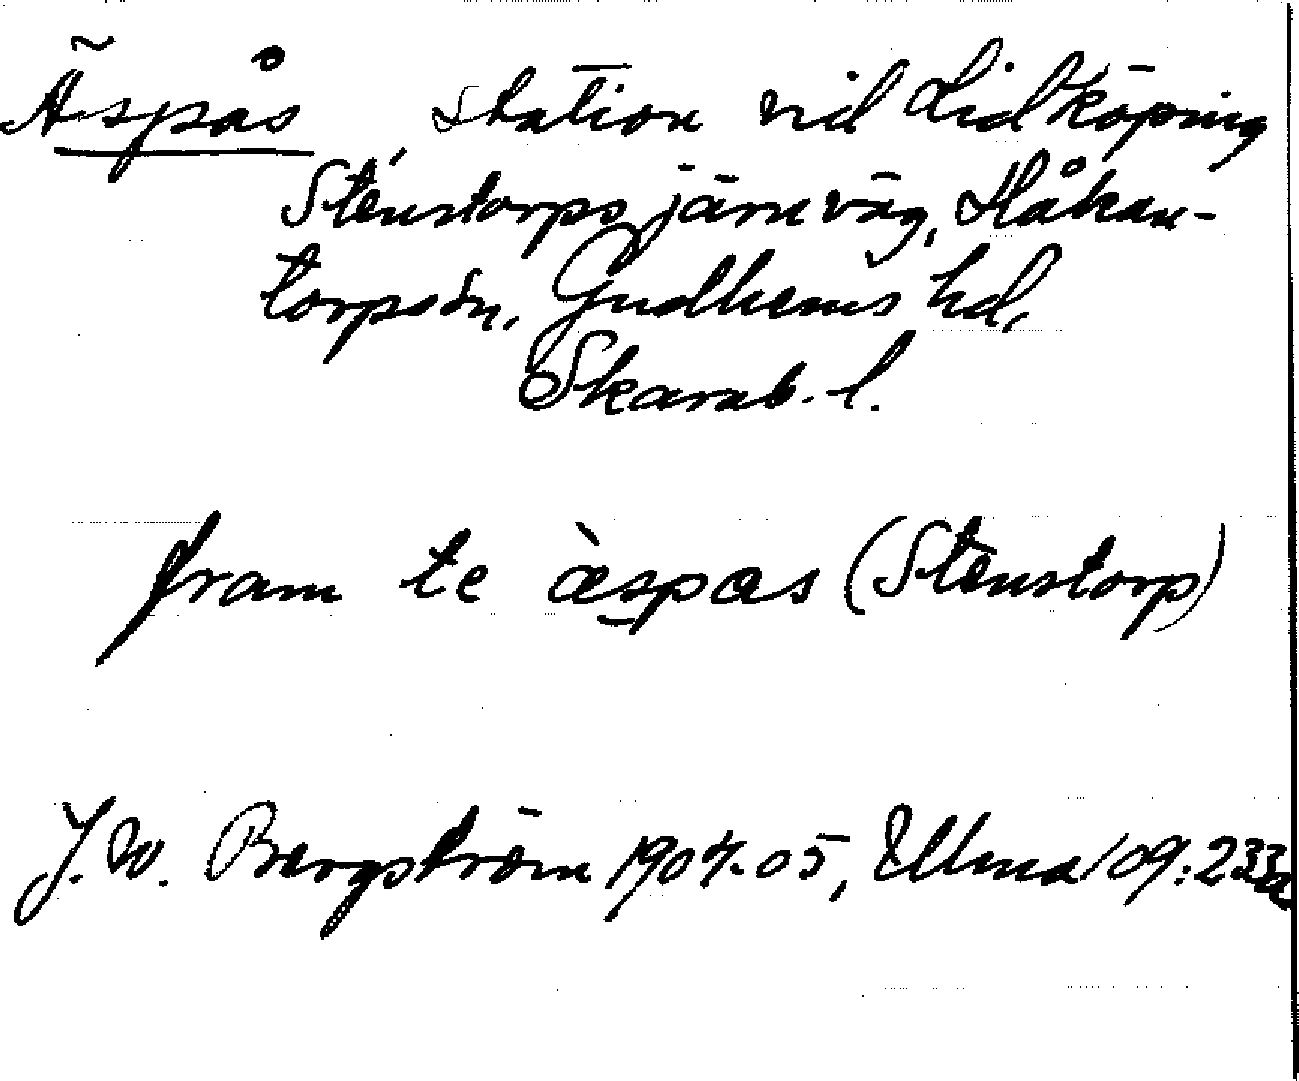 Äspås, station vid Lidköping
Stenstorps järnväg, Håkan-
torps sn, Gudhems hd,
Skarab. l.
fram te æ̀spas (Stenstorp)
J. W. Bergström 1904-05, Ullma 109: 233a